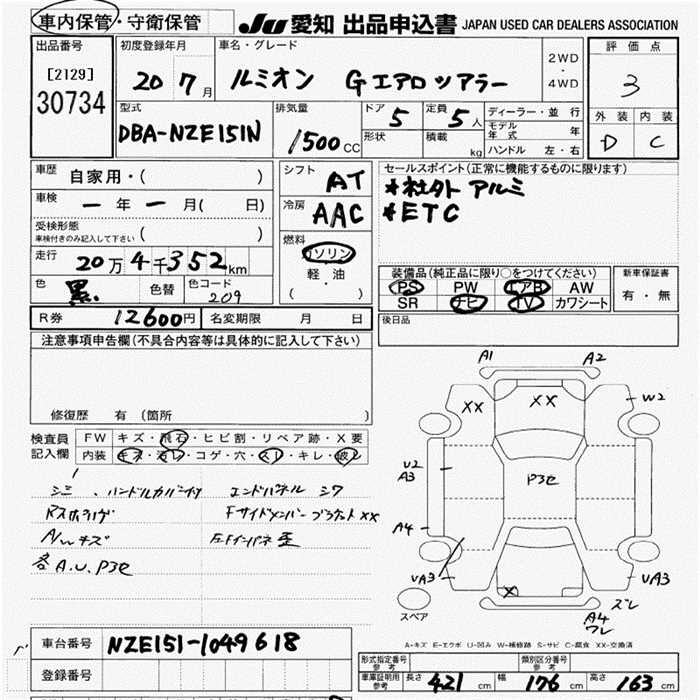 車内保管・守衛保管
JU 愛知 出品申込書 JAPAN USED CAR DEALERS ASSOCIATION
出品番号
[2129]
30734
初度登録年月
20 7月
車名・グレード
ルミオン Gエアロツアラー
2WD
・
4WD
評価点
3
外装 内装
D C
型式
DBA-NZE151N
排気量
1500CC
ドア 5
形状
定員 5人
積載 kg
ディーラー・並行
モデル年式 年
ハンドル 左・右
車歴 自家用・( )
車検 一年一月( 日)
受検形態
車検付きのみ記入して下さい ( )
走行 20万4千352km
色 黒 色替 色コード 209
シフト AT
冷房 AAC
燃料
ガソリン
軽・油
( )
セールスポイント(正常に機能するものに限ります)
*社外アルミ
*ETC
装備品(純正品に限り○をつけてください)
PS PW エアB AW
SR ナビ TV カワシート
新車保証書
有・無
R券 12600円 名変期限 月 日
後日品
注意事項申告欄(不具合内容等は具体的に記入して下さい)
修復歴 有(箇所 )
検査員記入欄
FW キズ・飛石・ヒビ割・リペア跡・X要
内装 キズ・汚レ・コゲ・穴・スレ・キレ・破レ
シミ、ハンドルカバー付 エンドパネル シワ
FサイドメンバーブラケットXX
A/wキズ
各A.U.P3セ
A1 A2
XX XX W2
U2
A3
P3セ
A4
UA3 X UA3
スレ
A4
ワレ
スペア
A・キズ E・エクボ U・凹み W・補修跡 S・サビ C・腐食 XX・交換済
車台番号 NZE151-1049618
登録番号
形式指定番号
参考
類別区分番号
参考
車庫証明用
参考
長さ 421cm 幅 176cm 高さ 163cm